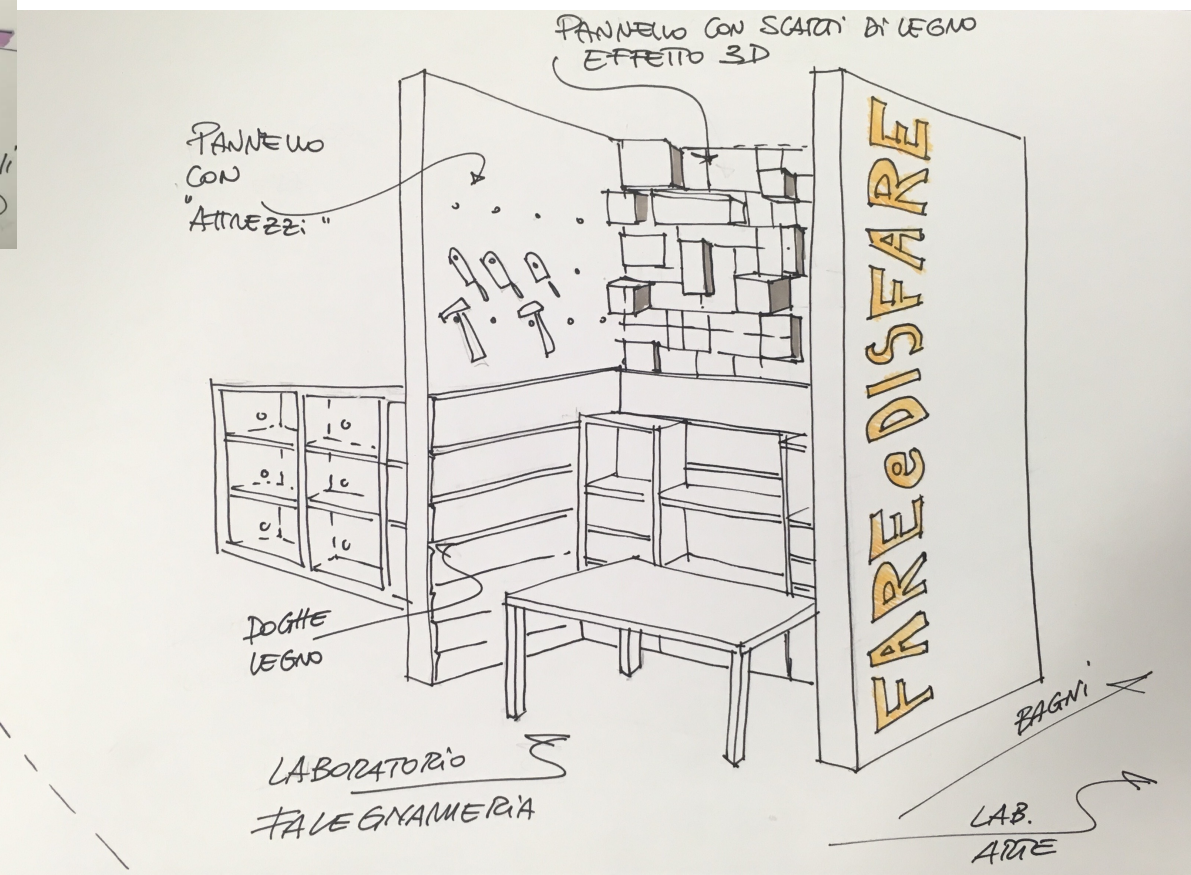 PANNELLO CON SCARTI DI LEGNO
EFFETTO 3D
PANNELLO
CON
"ATTREZZI"
FARE e DISFARE
DOGHE
LEGNO
LABORATORIO
FALEGNAMERIA
BAGNI
LAB.
ARTE